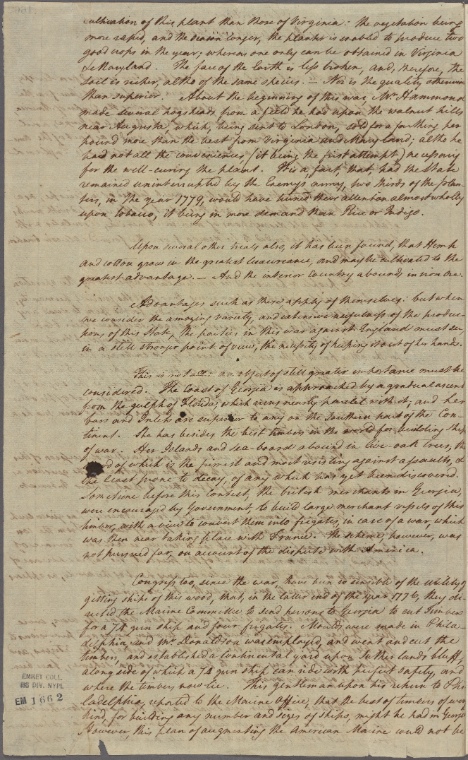 cultivation of this plant than those of Virginia. The vegetation being
more rapid, and the season longer, the planter is enabled to produce two
good crops in the year; whereas one only can be obtained in Virginia
or Maryland. The face of the Earth is less broken, and, therefore, the
Soil is richer, altho of the same species. — Nor is the quality otherwise
than superior. About the beginning of this war, Mr. Hammond
made several hogsheads from a field he had upon the walnut hills
near Augusta, which, being sent to London, sold for a farthing per
pound more than the best from Virginia and Maryland; altho he
had not all the conveniences (it being the first attempt) necessary
for the well-curing the plant. It is a fact, that, had the State
remained uninterrupted by the Enemy's army, two thirds of the plan-
ters, in the year 1779, would have turned their attention almost wholly
upon tobacco, it being in more demand than Rice or Indigo.
Upon several other trials also, it has been found, that Hemp
and cotton grow in the greatest luxuriance, and may be cultivated to the
greatest advantage. — And the interior Country abounds in iron ore.
Advantages such as these apply of themselves: but when
we consider the amazing variety, and extensive usefulness of the produc-
tions of this State, the parties in this war against England must see,
in a still stronger point of view, the necessity of keeping it out of her hands.
This is not all: an object of still greater importance must be
considered. The Coast of Georgia is approached by a gradual ascent
from the gulph of Florida, which runs nearly parallel with it; and her
bars and Inlets are superior to any on the Southern part of the Con-
tinent. She has besides the best timbers in the world for building Ships
of war. Her Islands and sea-board abound in live oak trees, the
of which is the firmest and most resisting against assaults, &
the least prone to decay, of any which has yet been discovered.
Sometime before this Contest, the British merchants in Georgia,
were encouraged by Government, to build large merchant vessels of this
timber, with a view to convert them into frigates, in case of a war, which
was then near taking place with France. The scheme, however, was
not pursued far, on account of the dispute with America.
Congress too, since the war, have been so sensible of the utility of
getting ships of this wood, that, in the latter end of the year 1776, they or-
dered the Marine Committee to send persons to Georgia to cut timber
for a 74 gun ship and four frigates. Moulds were made in Phila-
delphia, and Mr. Donaldson was employed, and went and cut the
timbers, and established a continental yard upon Sutherland's bluff,
along side of which a 74 gun ship can ride with perfect safety, and
where the timbers now lie. This gentleman upon his return to Phi-
ladelphia, reported to the Marine Office, that the best of timbers of every
kind, for building any number and sizes of ships, might be had in Georgia.
However this plan of augmenting the American Marine could not be
EMMET COLL.
MS DIV. NYPL
EM 1662